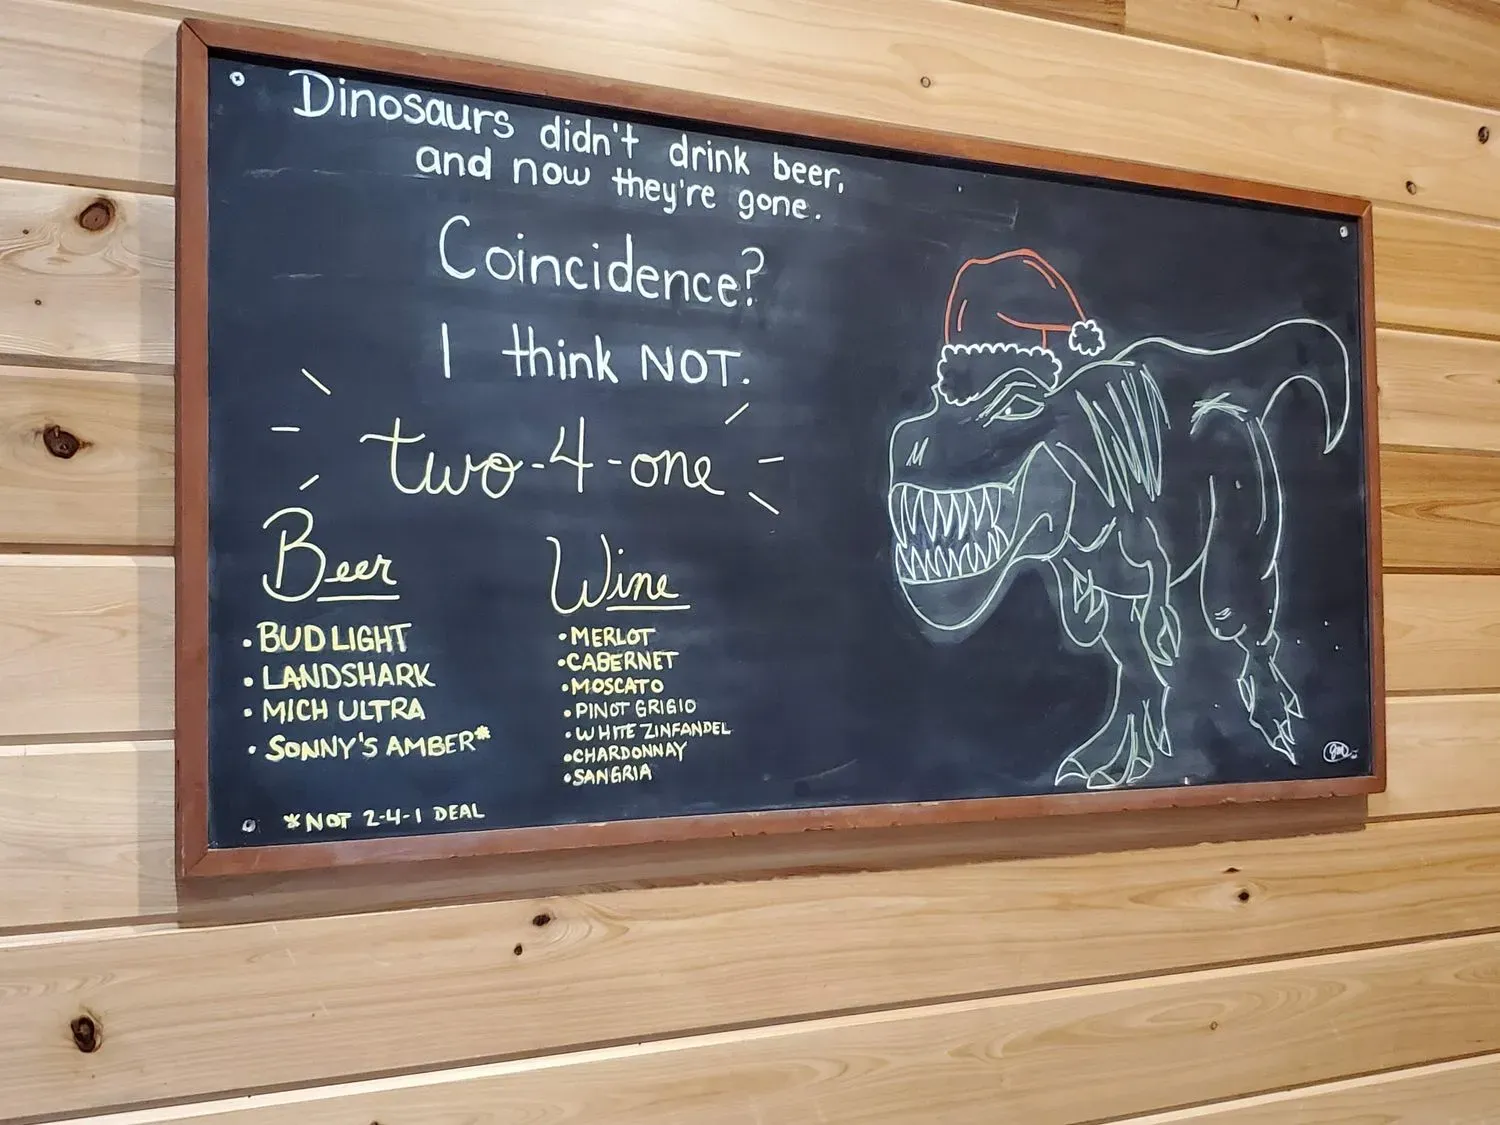 Dinosaurs didn't drink beer,
and now they're gone.
Coincidence?
I think NOT.
two-4-one
Beer
• BUD LIGHT
• LANDSHARK
• MICH ULTRA
• SONNY'S AMBER*
*NOT 2-4-1 DEAL
Wine
• MERLOT
• CABERNET
• MOSCATO
• PINOT GRIGIO
• WHITE ZINFANDEL
• CHARDONNAY
• SANGRIA